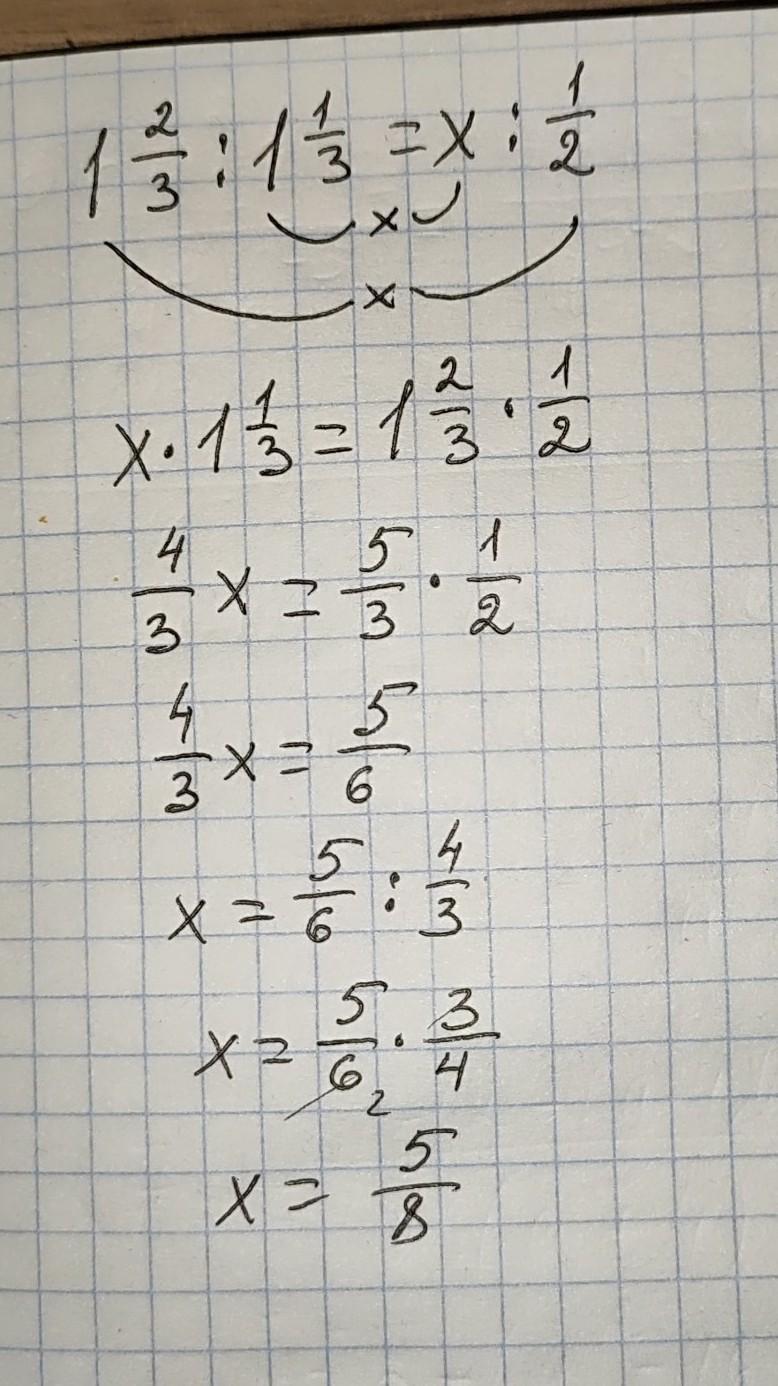 1 2/3 : 1 1/3 = x : 1/2
x
x
x · 1 1/3 = 1 2/3 · 1/2
4/3 x = 5/3 · 1/2
4/3 x = 5/6
x = 5/6 : 4/3
x = 5/6 2 · 3/4
x = 5/8